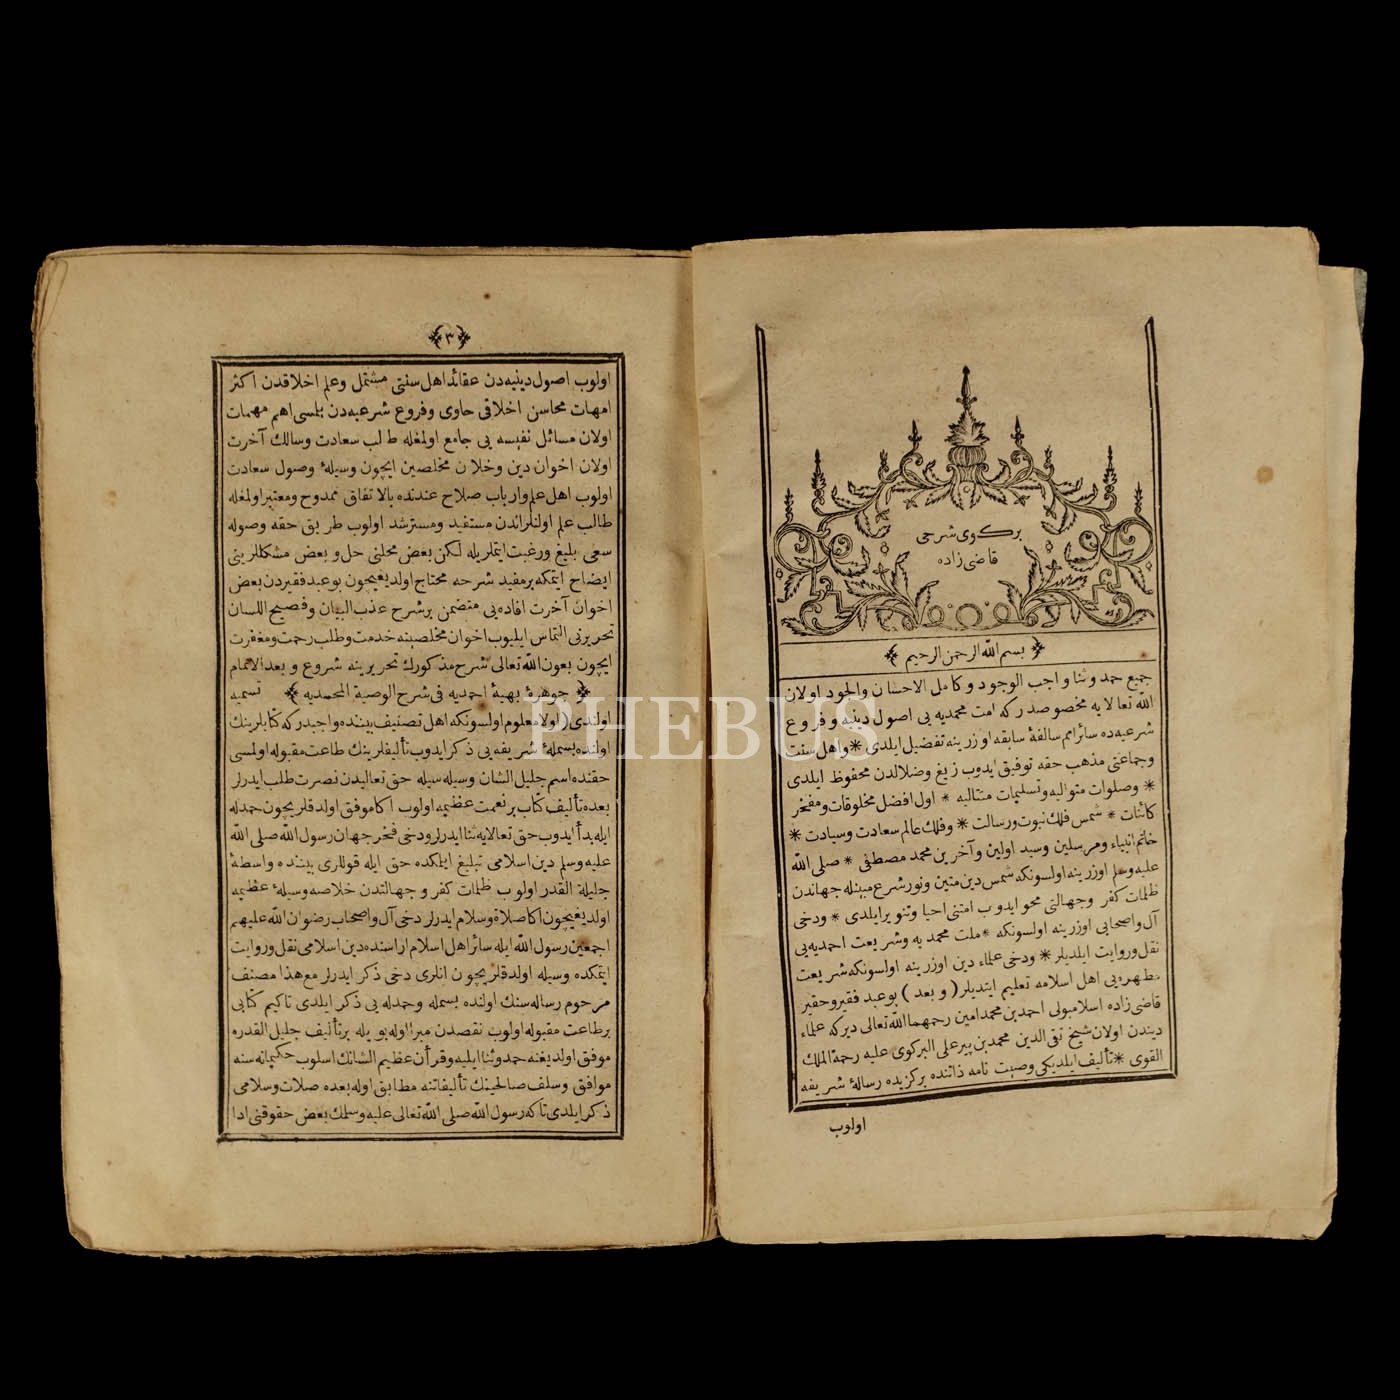 بركوی شرحی
قاضی زاده
بسم الله الرحمن الرحیم
جمیع حمد و ثنا واجب الوجود و كامل الاحسان والجود اولان
الله تعالایه مخصوصدر كه امت محمدیه یی اصول دینیه و فروع
شرعیه‌ده سائر امم سالفۀ سابقه اوزرینه تفضیل ایلدی * واهل سنت
وجماعتی مذهب حقه توفیق ایدوب زیغ وضلالدن محفوظ ایلدی
* وصلوات متوالیه وتسلیمات متتالیه * اول افضل مخلوقات ومفخر
كائنات * شمس فلك نبوت ورسالت * وفلك عالم سعادت وسیادت *
خاتم انبیاء ومرسلین وسید اولین وآخرین محمد مصطفی * صلی الله
علیه وسلم اوزرینه اولسونكه شمس دین متین ونور شرع مبینله جهاندن
ظلمات كفر وجهالتی محو ایدوب امتنی احیا وتنویر ایلدی * ودخی
آل واصحابی اوزرینه اولسونكه * ملت محمدیه وشریعت احمدیه یی
نقل وروایت ایلدیلر * ودخی علماء دین اوزرینه اولسونكه شریعت
مطهره یی اهل اسلامه تعلیم ایتدیلر (وبعد) بوعبد فقیر وحقیر
قاضی زاده اسلامبولی احمد بن محمد امین رحمهما الله تعالی دیركه علماء
دیندن اولان شیخ تقی الدین محمد بن پیر علی البركوی علیه رحمة الملك
القوی * تألیف ایلدیكی وصیت نامه ذاتنده بركزیده رسالۀ شریفه
اولوب
﴿٣﴾
اولوب اصول دینیه‌دن عقائد اهل سنتی مشتمل وعلم اخلاقدن اكثر
امهات محاسن اخلاقی حاوی وفروع شرعیه‌دن بلسی اهم مهمات
اولان مسائل نفیسه یی جامع اولمغله طالب سعادت وسالك آخرت
اولان اخوان دین وخلان مخلصین ایچون وسیلۀ وصول سعادت
اولوب اهل علم وارباب صلاح عندنده بالاتفاق ممدوح ومعتبر اولمغله
طالب علم اولنلراندن مستفید ومسترشد اولوب طریق حقه وصوله
سعی بلیغ ورغبت ایتملریله لكن بعض محلنی حل و بعض مشكللرینی
ایضاح ایتمكه برمفید شرحه محتاج اولدیغیچون بوعبد فقیردن بعض
اخوان آخرت افاده یی متضمن برشرح عذب البیان وفصیح اللسان
تحریرنی التماس ایلیوب اخوان مخلصینه خدمت وطلب رحمت ومغفرت
ایچون بعون الله تعالی شرح مذكورك تحریرینه شروع و بعد الاتمام
﴿ جوهرۀ بهیۀ احمدیه فی شرح الوصیة المحمدیه ﴾ تسمیه
اولندی (اولا) معلوم اولسونكه اهل تصنیف بیننده واجبدركه كتابلرینك
اولنده بسملۀ شریفه یی ذكر ایدوب تألیفلرینك طاعت مقبوله اولمسی
حقنده اسم جلیل الشان وسیله سیله حق تعالیدن نصرت طلب ایدرلر
بعده تألیف كتاب برنعمت عظیمه اولوب اكا موفق اولدقلریچون حمدله
ایله بدأ ایدوب حق تعالایه ثنا ایدرلر ودخی فخر جهان رسول الله صلی الله
علیه وسلم دین اسلامی تبلیغ ایلمكده حق ایله قوللری بیننده واسطۀ
جلیلة القدر اولوب ظلمات كفر و جهالتدن خلاصه وسیلۀ عظیمه
اولدیغیچون اكا صلاة وسلام ایدرلر دخی آل واصحاب رضوان الله علیهم
اجمعین رسول الله ایله سائر اهل اسلام اراسنده دین اسلامی نقل وروایت
ایتمكده وسیله اولدقلریچون انلری دخی ذكر ایدرلر مع هذا مصنف
مرحوم رساله سنك اولنده بسمله وحمدله یی ذكر ایلدی تاكیم كتابی
برطاعت مقبوله اولوب نقصدن مبرا اوله بویله برتألیف جلیل القدره
موفق اولدیغنه حمد وثنا ایلیه وقرآن عظیم الشانك اسلوب حكیمانه سنه
موافق وسلف صالحینك تألیفاتنه مطابق اوله بعده صلات وسلامی
ذكر ایلدی تاكه رسول الله صلی الله تعالی علیه وسلمك بعض حقوقنی ادا
PHEBUS